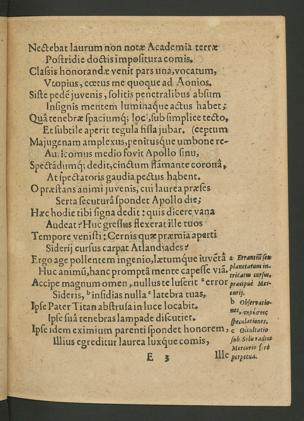 Nectebat laurum non notæ Academia terræ
Postridie doctis impositura comis.
Classis honorandæ venit pars una, vocatum,
Vtopius, cœtus me quoque ad Aonios.
Siste pedẽ juvenis, solitis penetralibus absum
Insignis mentem luminaque actus habet;
Quâ tenebræ spaciumq; loci, sub simplice tecto,
Et subtile aperit tegula fissa jubar. (ceptum
Majugenam amplexus, penitusque umbone re-
Auricomus medio fovit Apollo sinu,
Spectādumq; dedit, cinctum flāmante coronâ,
At spectatoris gaudia pectus habent.
O præstans animi juvenis, cui laurea præses
Serta secuturâ spondet Apollo die;
Hæc hodie tibi signa dedit: quis dicere vana
Audeat? Huc gressus flexerat ille tuos
Tempore venisti: Cernis quæ præmia aperti
Siderij cursus carpat Atlandiades?
Ergo age pollentem ingenio, lætumque juvētā
Huc animū, hanc promptâ mente capesse viā.
Accipe magnum omen, nullus te luserit a error
Sideris, b insidias nulla c latebra tuas,
Ipse Pater Titan abstrusa in luce locabit.
Ipse suâ tenebras lampade discutiet.
Ipse idem eximium parenti spondet honorem,
Illius egreditur laurea luxque comis,
E 3
Ille
a Errantiū seu
planetarum in-
tricatus cursus,
præcipuè Mer-
curij.
b Observatio-
nes,
speculationes.
c Occultatio
sub Solis radios
Mercurio
perpetua.